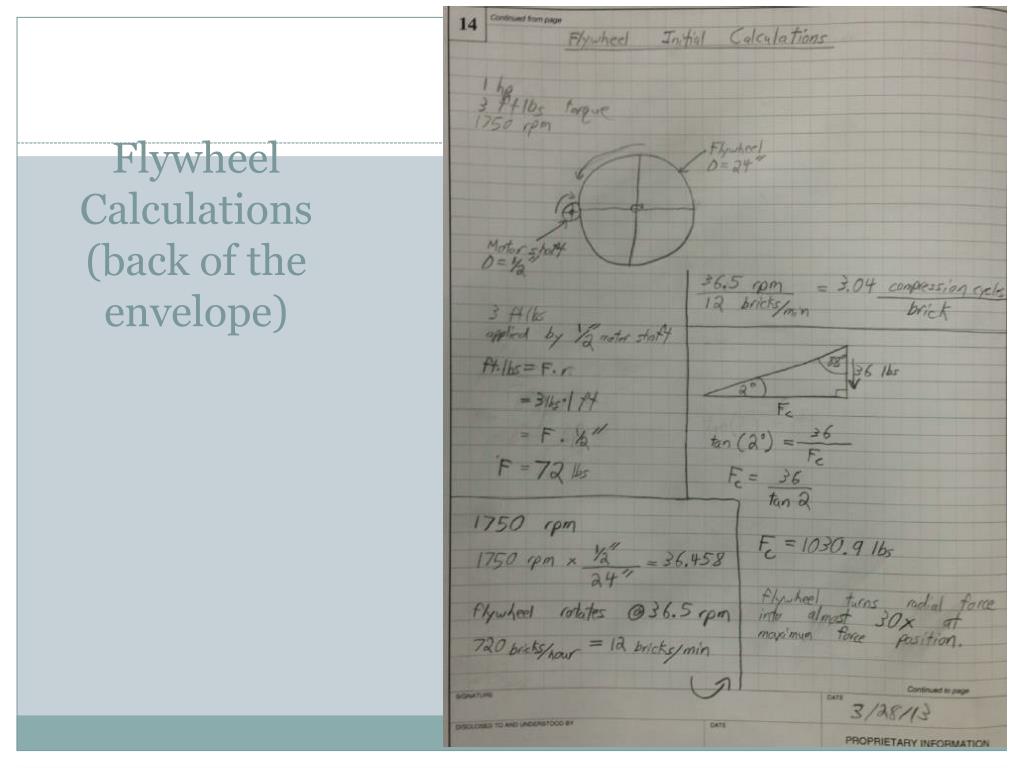 Flywheel
Calculations
(back of the
envelope)
14
Continued from page
Flywheel Initial Calculations
1 hp
3 ft lbs torque
1750 rpm
Flywheel
D = 24"
Motor shaft
D = 1/2"
36.5 rpm / 12 bricks/min = 3.04 compression cycles / brick
3 ft lbs
applied by 1/2" motor shaft
ft.lbs = F·r
= 3 lbs·1 ft
= F · 1/2"
F = 72 lbs
2°
88°
36 lbs
Fc
tan(2°) = 36 / Fc
Fc = 36 / tan 2
Fc = 1030.9 lbs
Flywheel turns radial force
into almost 30x at
maximum force position.
1750 rpm
1750 rpm x 1/2" / 24" = 36.458
flywheel rotates @ 36.5 rpm
720 bricks/hour = 12 bricks/min
SIGNATURE
DISCLOSED TO AND UNDERSTOOD BY
DATE
Continued to page
DATE
3/28/13
PROPRIETARY INFORMATION